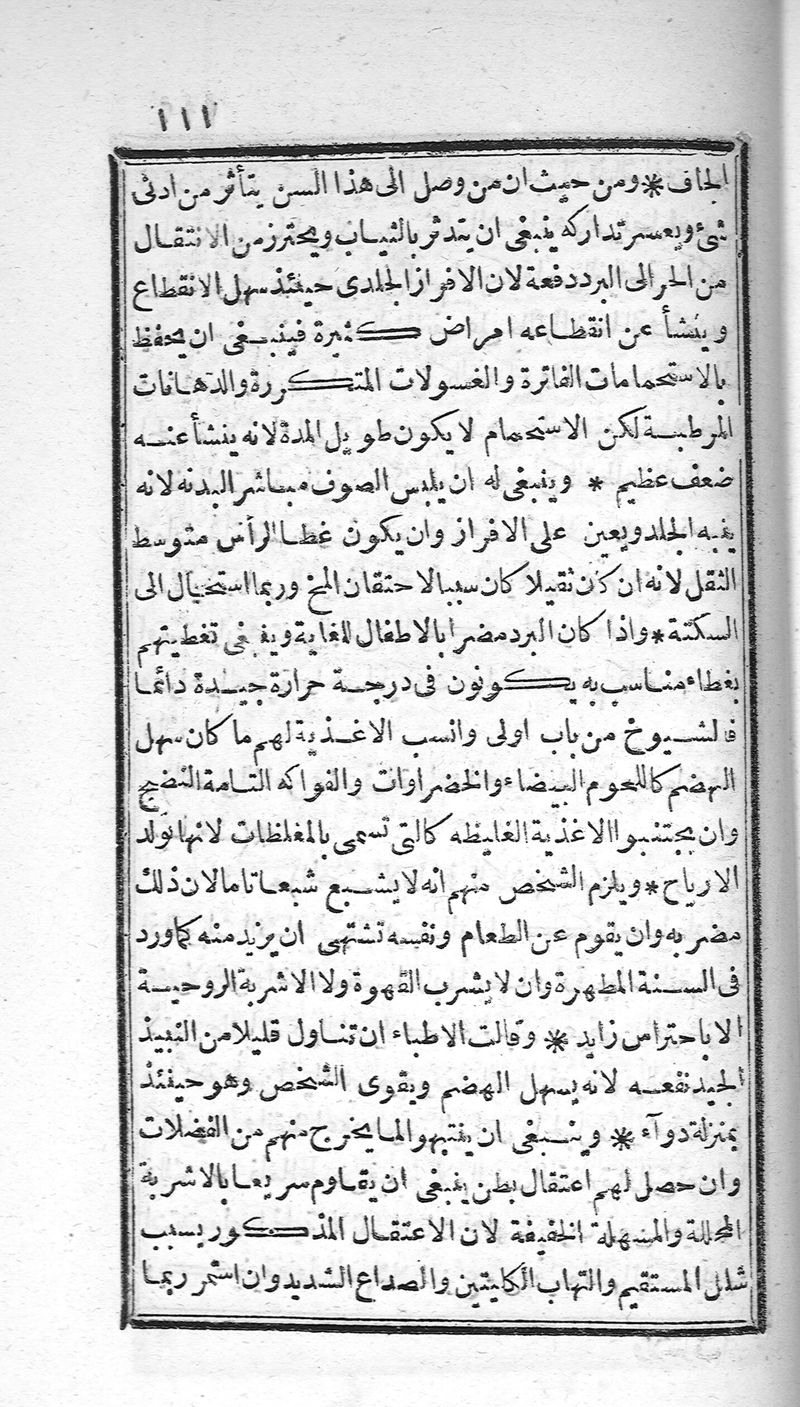 ١١١
الجاف * ومن حيث ان من وصل الى هذا السن يتأثر من ادنى
شئ ويعسر تداركه ينبغى ان يتدثر بالثياب ويحترز من الانتقال
من الحر الى البرد دفعة لان الافراز الجلدى حينئذ سهل الانقطاع
وينشأ عن انقطاعه امراض كثيرة فينبغى ان يحفظ
بالاستحمامات الفاترة والغسولات المتكررة والدهانات
المرطبة لكن الاستحمام لا يكون طويل المدة لانه ينشأ عنه
ضعف عظيم * وينبغى له ان يلبس الصوف مباشر البدنه لانه
ينبه الجلد ويعين على الافراز وان يكون غطا الرأس متوسط
الثقل لانه ان كان ثقيلا كان سببا لاحتقان المخ وربما استحال الى
السكتة * واذا كان البرد مضرا بالاطفال للغاية وينبغى تغطيتهم
بغطاء مناسب به يكونون فى درجة حرارة جيدة دائما
فالشيوخ من باب اولى وانسب الاغذية لهم ما كان سهل
الهضم كاللحوم البيضاء والخضراوات والفواكه التامة النضج
وان يجتنبوا الاغذية الغليظه كالتى تسمى بالمغلظات لانها تولد
الارياح * ويلزم الشخص منهم انه لا يشبع شبعا تاما لان ذلك
مضر به وان يقوم عن الطعام ونفسه تشتهى ان يزيد منه كما ورد
فى السنة المطهرة وان لا يشرب القهوة ولا الاشربة الروحية
الا باحتراس زايد * وقالت الاطباء ان تناول قليلا من النبيذ
الجيد نفعه لانه يسهل الهضم ويقوى الشخص وهو حينئذ
بمنزلة دوآء * وينبغى ان ينتبهوا لما يخرج منهم من الفضلات
وان حصل لهم اعتقال بطن ينبغى ان يقاوم سريعا بالاشربة
المحللة والمسهلة الخفيفة لان الاعتقال المذكور يسبب
شلل المستقيم والتهاب الكليتين والصداع الشديد وان استمر ربما